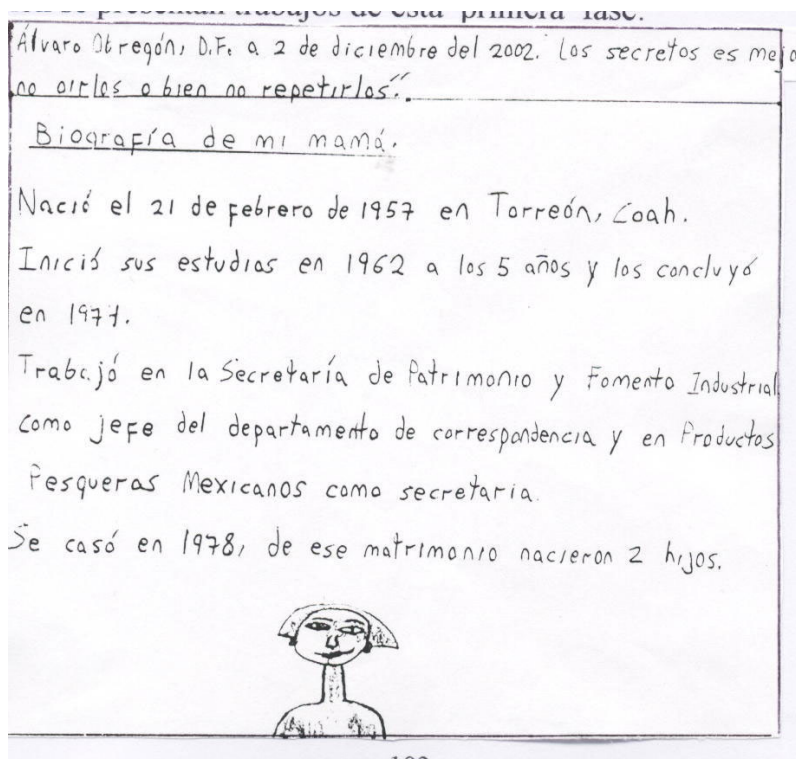 se presentan trabajos de esta primera fase.
Álvaro Obregón, D.F. a 2 de diciembre del 2002. Los secretos es mejo
no oirlos o bien no repetirlos".
Biografía de mi mamá.
Nació el 21 de febrero de 1957 en Torreón, Coah.
Inició sus estudios en 1962 a los 5 años y los concluyó
en 1977.
Trabajó en la Secretaría de Patrimonio y Fomento Industrial
como jefe del departamento de correspondencia y en Productos
Pesqueros Mexicanos como secretaria.
Se casó en 1978, de ese matrimonio nacieron 2 hijos.